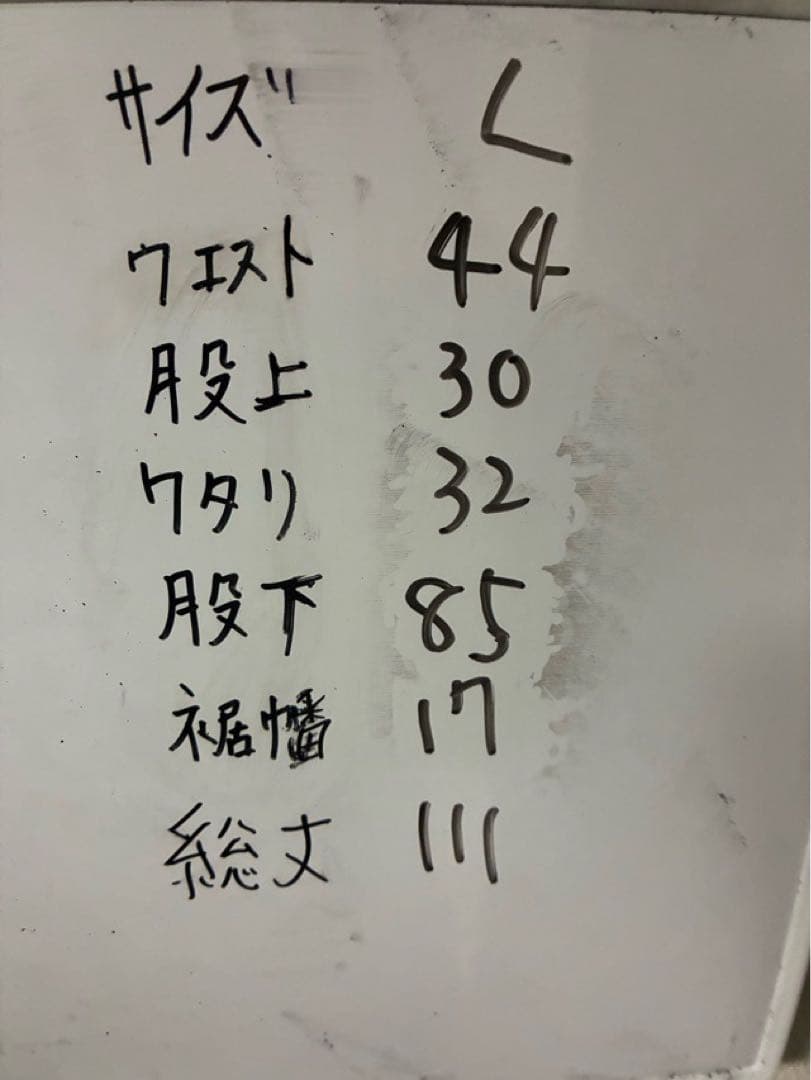 サイズ L
ウエスト 44
股上 30
ワタリ 32
股下 85
裾幡 17
総丈 111